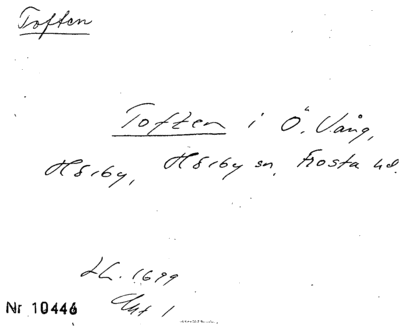 Toften
Toften i Ö. Vång,
Hörby, Hörby sn, Frosta hd.
LH. 1699
Akt 1
Nr 10446